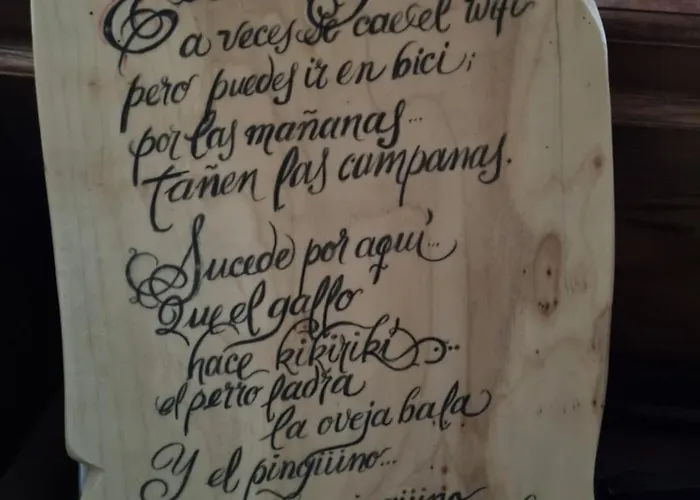 a veces se cae el wifi
pero puedes ir en bici;
por las mañanas...
tañen las campanas.
Sucede por aquí...
Que el gallo
hace kikirikí...
el perro ladra
la oveja bala
Y el pingüino...